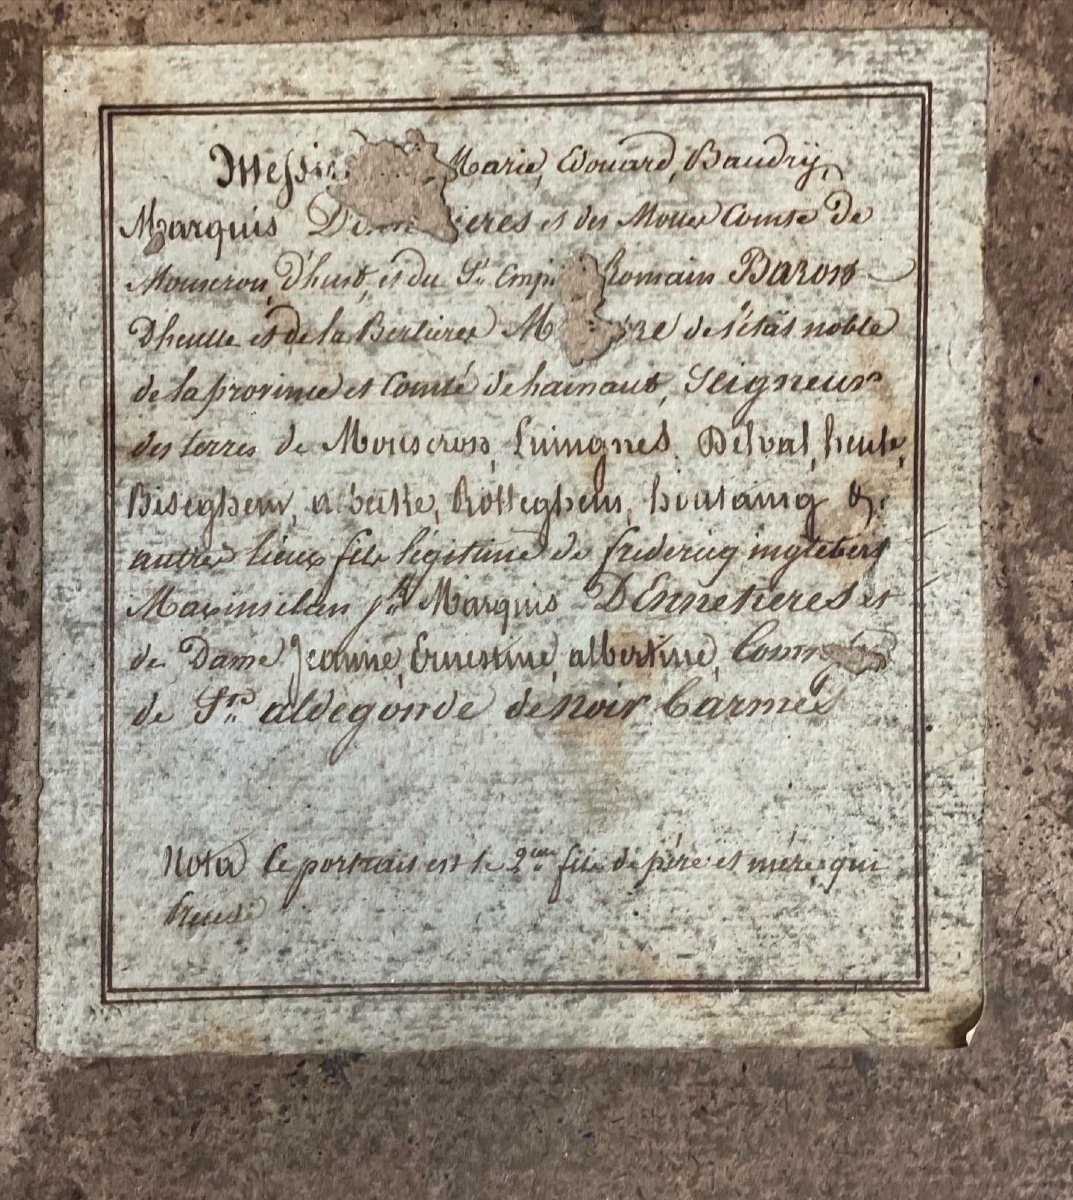 Messir Marie, Edouard, Baudry,
Marquis D ieres et des Mottes Comte De
Mouscron, D'hust, et du St. Empi Romain Baron
Dheulle et de la Berlierre M re de l'état noble
de la province et Comté de hainaut, Seigneur
des terres de Mouscron, Luingnes, Delval, heule,
Biseghem, a Rolleghem, houtaing &.
autres lieux fils légitime de fredericq inglebert
Maximilan Marquis D'Ennetieres et
de Dame Jeanne, Ernestine, albertine, Com
de Ste. aldegonde de noir Carmes
Nota Ce portrait est le 2 fils de père et mère, qui